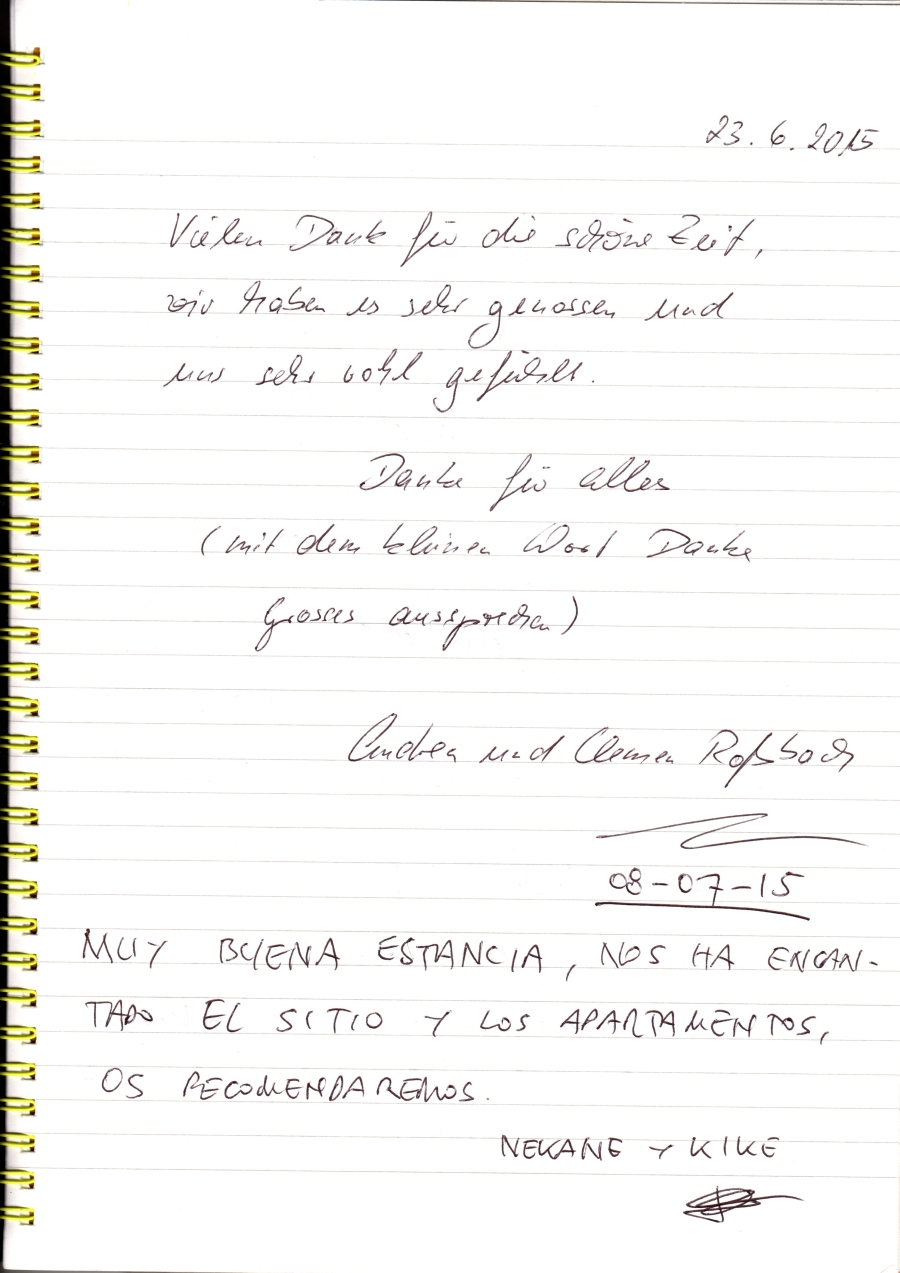 23.6.2015
Vielen Dank für die schöne Zeit,
wir haben es sehr genossen und
uns sehr wohl gefühlt.
Danke für alles
(mit dem kleinen Wort Danke
Grosses aussprechen)
Andrea und Clemen Roßbach
08-07-15
MUY BUENA ESTANCIA, NOS HA ENCAN-
TADO EL SITIO Y LOS APARTAMENTOS,
OS RECOMENDAREMOS.
NEKANE Y KIKE